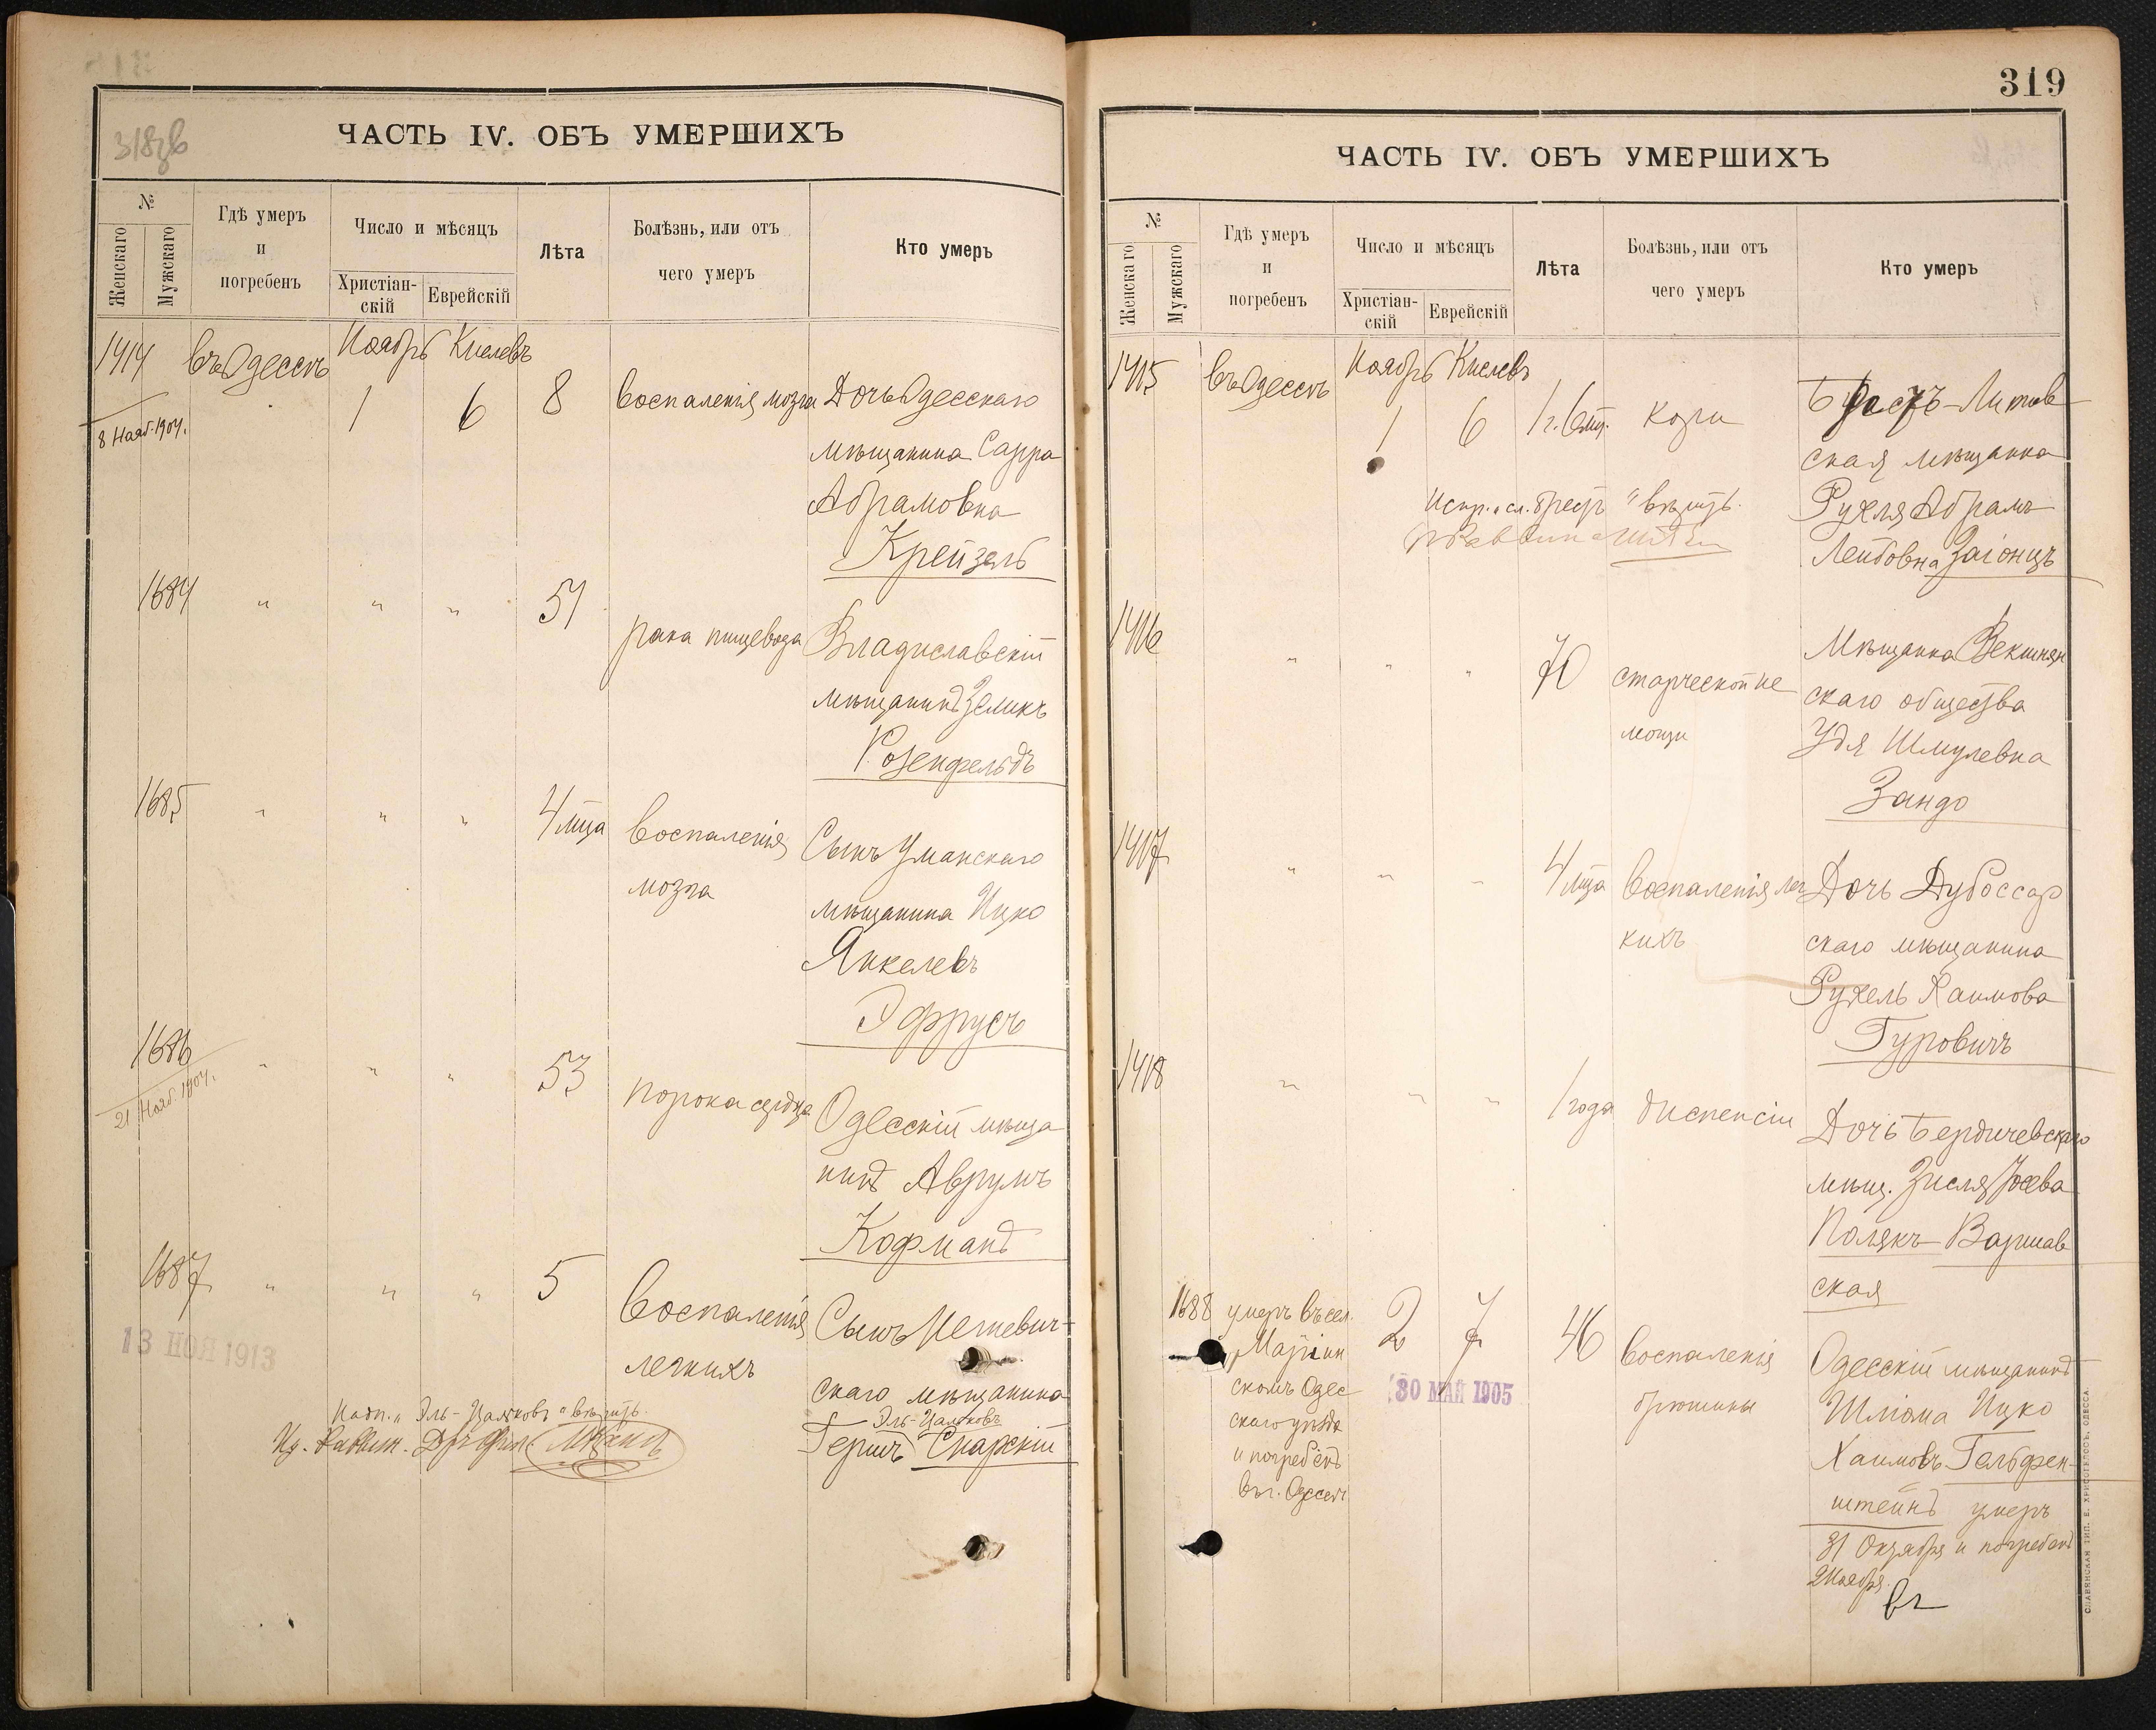 ЧАСТЬ IV. ОБЪ УМЕРШИХЪ
№
Женскаго
Мужскаго
Гдѣ умеръ
и
погребенъ
Число и мѣсяцъ
Христіан-
скій
Еврейскій
Лѣта
Болѣзнь, или отъ
чего умеръ
Кто умеръ
1414 въ Одессѣ Ноябрь Кислевъ
8 Нояб. 1904.
1 6 8 воспаленія мозга Дочь Одесскаго
мѣщанина Сарра
Абрамовна
Крейзель
1684 " " " 51
рака пищевода Владиславскій
мѣщанинъ Зеликъ
Розенфельдъ
1685 " " " 4 м-ца воспаленія
мозга
Сынъ Уманскаго
мѣщанина Ицко
Янкелевъ
Эфрусъ
1686 " " " 53
21 Нояб. 1904.
порока сердца Одесскій мѣща
нинъ Аврумъ
Кофманъ
1687 " " " 5 воспаленія
легкихъ
Сынъ
скаго мѣщанина
Эль-Цалковъ
Гершъ Снарскій
13 НОЯ 1913
Надп. " Эль-Цалковъ " вѣрить.
319
ЧАСТЬ IV. ОБЪ УМЕРШИХЪ
№
Женскаго
Мужскаго
Гдѣ умеръ
и
погребенъ
Число и мѣсяцъ
Христіан-
скій
Еврейскій
Лѣта
Болѣзнь, или отъ
чего умеръ
Кто умеръ
1415 въ Одессѣ Ноябрь Кислевъ
1 6 1 г. 6 мц. кори Брестъ-Литов
ская мѣщанка
Рухля Абрамъ
Лейбовна Загонцъ
Испр. сл. Брестъ " вѣрить.
1416 " " " 70 старческой не
мощи
Мѣщанка Векшнян
скаго общества
Удя Шмулевна
Зандо
1417 " " " 4 м-ца воспаленія лег
кихъ
Дочь Дубоссар
скаго мѣщанина
Рухель Хаимова
Гуровичъ
1418 " " " 1 года диспепсіи
Дочь Бердичевскаго
мѣщ. Зисля Іосева
Полякъ-Варшав
ская
1688 умеръ въ сел.
Маріин
скомъ Одес
скаго уѣзда
и погребенъ
въ г. Одессѣ
2 7 46 воспаленія
брюшины
30 МАЙ 1905
Одесскій мѣщанинъ
Шлiома Ицко
Хаимовъ Гельфен
штейнъ умеръ
31 Октября и погребенъ
2 Ноября.
СЛАВЯНСКАЯ ТИП. Е. ХРИСОГЕЛОСЪ, ОДЕССА.